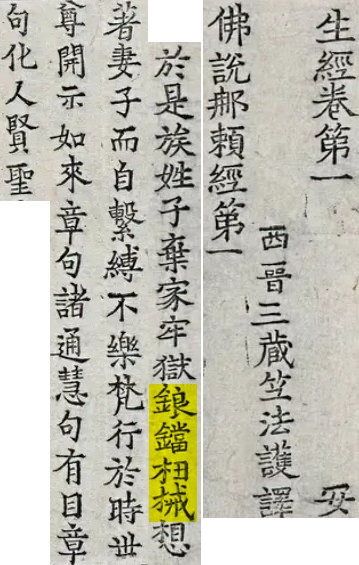 生經卷第一 安
西晉三藏竺法護譯
佛說那賴經第一
於是族姓子棄家牢獄鋃鐺杻械想
著妻子而自繫縛不樂梵行於時世
尊開示如來章句諸通慧句有目章
句化人賢聖